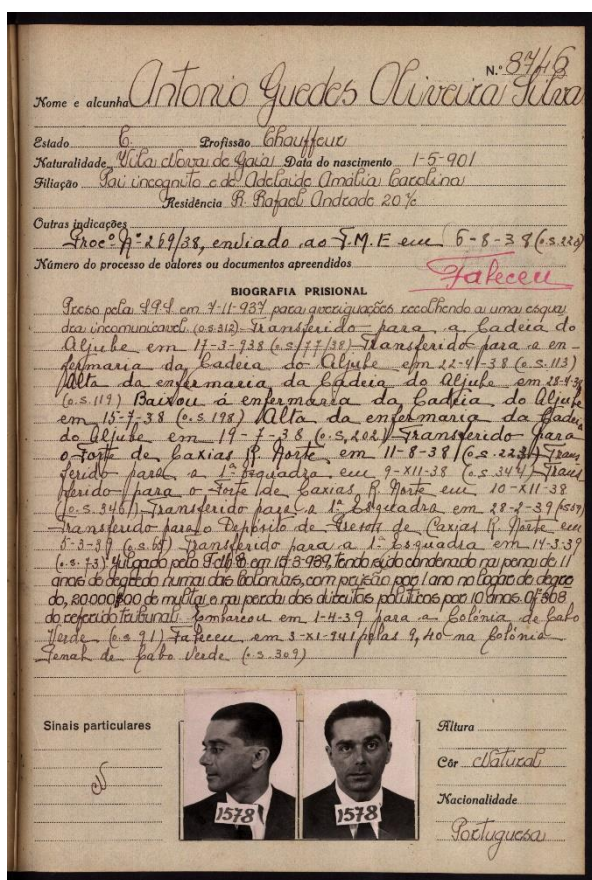 N.º 8746
Nome e alcunha Antonio Guedes Oliveira Silva
Estado C. Profissão Chauffeur
Naturalidade Vila Nova de Gaia Data do nascimento 1-5-901
Filiação Pai incognito e de Adelaide Amália Carolina
Residência R. Rafael Andrade 20
Outras indicações
Procº Nº 269/38, enviado ao T.M.E em 6-8-38 (o.s.220)
Número do processo de valores ou documentos apreendidos
Faleceu
BIOGRAFIA PRISIONAL
Preso pela SPS em 7-11-937 para averiguações recolhendo a uma esqua
dra incomunicavel (o.s.312) Transferido para a Cadeia do
Aljube em 17-3-938 (o.s. 77/38) Transferido para a en-
fermaria da Cadeia do Aljube em 22-4-38 (o.s.113)
Alta da enfermaria da Cadeia do Aljube em 28-4-38
(o.s.119) Baixou á enfermaria da Cadeia do Aljube
em 15-7-38 (o.s.198) Alta da enfermaria da Cadeia
do Aljube em 19-7-38 (o.s,202) Transferido para
o Forte de Caxias R. Norte em 11-8-38 (o.s.223) Trans
ferido para a 1ª Esquadra em 9-XII-38 (o.s.344) Trans
ferido para o Forte de Caxias R. Norte em 10-XII-38
(o.s.346) Transferido para a 1ª Esquadra em 28-2-39
Transferido para o Depósito de Presos de Caxias R. Norte em
5-3-39 Transferido para a 1ª Esquadra em 14-3-39
(o.s.73) Julgado pelo em tendo sido condenado na pena de 11
anos de degredo numa das Colonias, com prisão por 1 ano no logar do degre
do, 20.000$00 de multa e na perda dos direitos politicos por 10 anos. Of.808
do referido tribunal. Embarcou em 1-4-39 para a Colónia de Cabo
Verde (o.s.91) Faleceu em 3-XI-941 pelas 9,40 na Colónia
Penal de Cabo Verde (o.s.309)
Sinais particulares
Altura
Côr Natural
Nacionalidade
Portuguesa
1578
1578